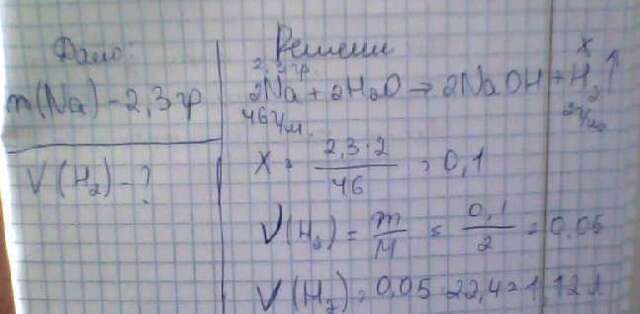 Дано:
m(Na) - 2,3 гр
V(H₂) - ?
Решение
2,3 гр. x
2Na + 2H₂O → 2NaOH + H₂↑
46 г/м.
x = 2,3·2 / 46 = 0,1
V(H₂) = m / M = 0,1 / 2 = 0,05
V(H₂) = 0,05 22,4 = 1,12 л